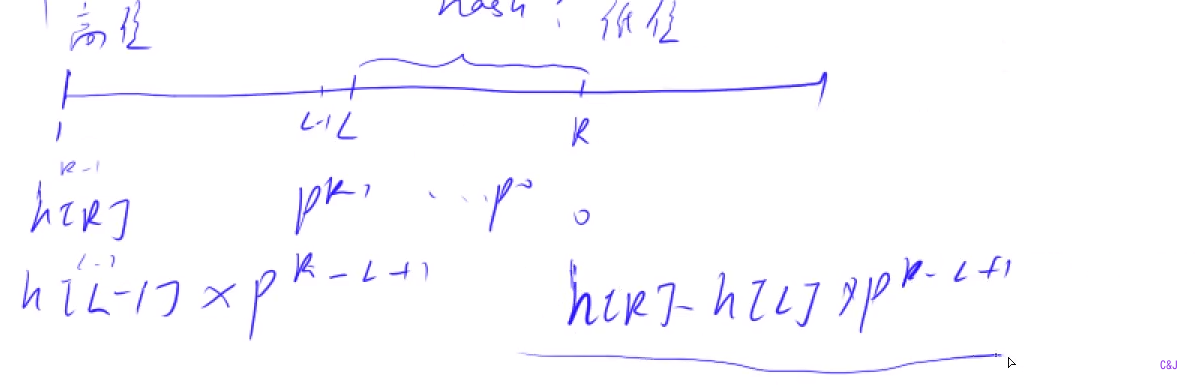 高位 hash: 低位
1 L-1 L R
R-1
h[R] p^{R-1} ... p^0 0
L-1
h[L-1] × p^{R-L+1} h[R] - h[L] × p^{R-L+1}
C&J